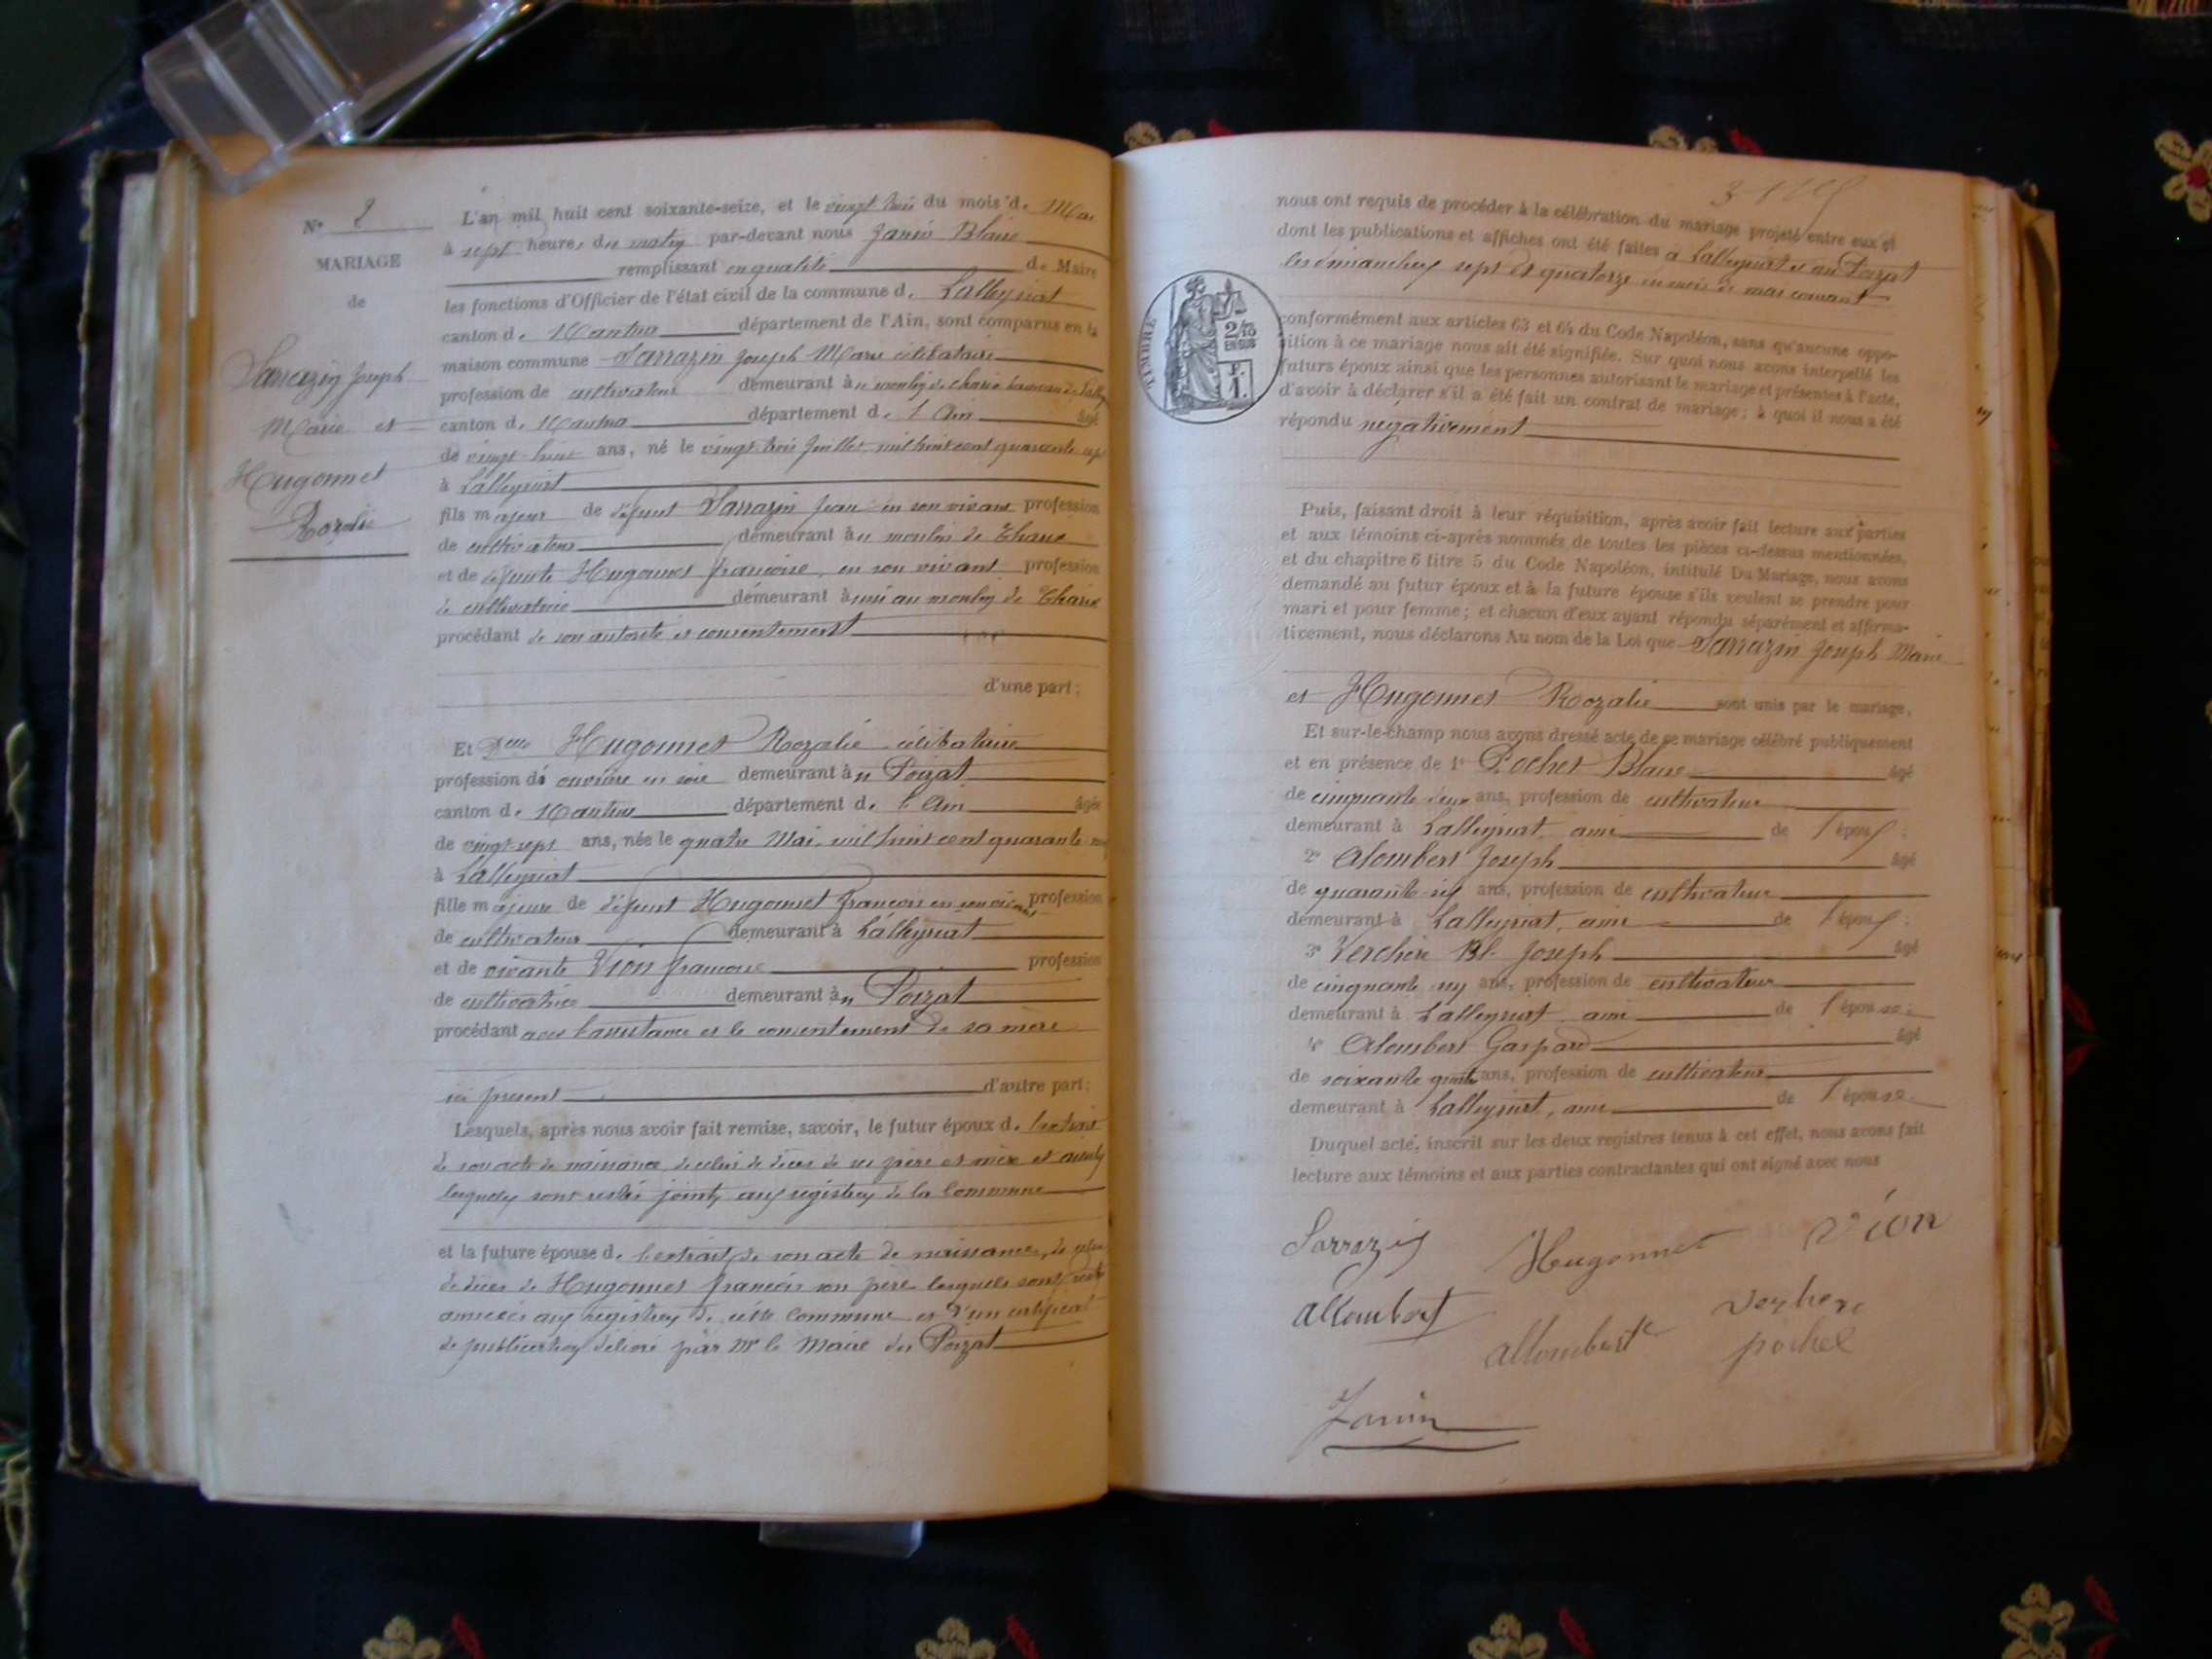 N° 2
MARIAGE
de
Sarrazin Joseph
Marie et
Hugonnet
Rozalie
L'an mil huit cent soixante-seize, et le vingt trois du mois d. Mars
à sept heures du matin par-devant nous Janin Blaise
remplissant en qualité de Maire
les fonctions d'Officier de l'état civil de la commune d. Lalleyriat
canton d. Nantua département de l'Ain, sont comparus en la
maison commune Sarrazin Joseph Marie célibataire
profession de cultivateur demeurant au moulin de Charix hameau de Lalley
canton d. Nantua département d. l'Ain âgé
de vingt huit ans, né le vingt trois Juillet mil huit cent quarante sept
à Lalleyriat
fils majeur de défunt Sarrazin Jean en son vivant profession
de cultivateur demeurant au moulin de Charix
et de défunte Hugonnet françoise, en son vivant profession
de cultivatrice demeurant aussi au moulin de Charix
procédant de son autorité et consentement
d'une part;
Et Delle Hugonnet Rozalie célibataire
profession de ouvrière en soie demeurant au Poizat
canton d. Nantua département d. l'Ain âgée
de vingt sept ans, née le quatre Mai mil huit cent quarante
à Lalleyriat
fille majeure de défunt Hugonnet françois en son vivant profession
de cultivateur demeurant à Lalleyriat
et de vivante Vion françoise profession
de cultivatrice demeurant au Poizat
procédant avec l'assistance et le consentement de sa mère
ici present d'autre part;
Lesquels, après nous avoir fait remise, savoir, le futur époux d. l'extrait
de son acte de naissance, de celui de décès de ses père et mère et aïeuls
lesquels sont restés joints aux registres de la Commune
et la future épouse d. l'extrait de son acte de naissance, de celui
de décès de Hugonnet françois son père lesquels sont restés
annexés aux registres de cette Commune et d'un certificat
de publication délivré par Mr le Maire du Poizat
nous ont requis de procéder à la célébration du mariage projeté entre eux et
dont les publications et affiches ont été faites à Lalleyriat et au Poizat
les dimanches sept et quatorze du mois de mars courant
TIMBRE
2/10 EN SUS
F. 1.
conformément aux articles 63 et 64 du Code Napoléon, sans qu'aucune oppo-
sition à ce mariage nous ait été signifiée. Sur quoi nous avons interpellé les
futurs époux ainsi que les personnes autorisant le mariage et présentes à l'acte,
d'avoir à déclarer s'il a été fait un contrat de mariage; à quoi il nous a été
répondu négativement
Puis, faisant droit à leur réquisition, après avoir fait lecture aux parties
et aux témoins ci-après nommés de toutes les pièces ci-dessus mentionnées,
et du chapitre 6 titre 5 du Code Napoléon, intitulé Du Mariage, nous avons
demandé au futur époux et à la future épouse s'ils veulent se prendre pour
mari et pour femme; et chacun d'eux ayant répondu séparément et affirma-
tivement, nous déclarons Au nom de la Loi que Sarrazin Joseph Marie
et Hugonnet Rozalie sont unis par le mariage.
Et sur-le-champ nous avons dressé acte de ce mariage célébré publiquement
et en présence de 1° Pochet Blaise âgé
de cinquante deux ans, profession de cultivateur
demeurant à Lalleyriat, ami de l'époux;
2° Alombert Joseph âgé
de quarante six ans, profession de cultivateur
demeurant à Lalleyriat, ami de l'époux;
3° Verchère Bt. Joseph âgé
de cinquante six ans, profession de cultivateur
demeurant à Lalleyriat, ami de l'épouse;
4° Alombert Gaspard âgé
de soixante quatre ans, profession de cultivateur
demeurant à Lalleyriat, ami de l'épouse.
Duquel acte, inscrit sur les deux registres tenus à cet effet, nous avons fait
lecture aux témoins et aux parties contractantes qui ont signé avec nous
Sarrazin Hugonnet Vion
allombert allombert verchere
pochet
Janin